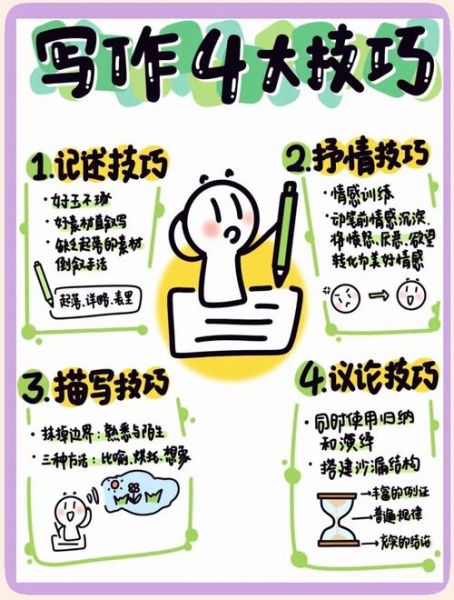 写作4大技巧
1.记述技巧
·好玉不琢
·好素材直叙写
·缺乏起落的素材
倒叙手法
起落、详略、表里
2.抒情技巧
·情感训练
·动笔前情感沉淀、
将愤怒、厌恶、欲望
转化为美好情感
3.描写技巧
·抹掉边界：熟悉与陌生
·三种方法：比喻、烘托、想象
4.议论技巧
·同时使用归纳
和演绎
·搭建沙漏结构
丰富的例证
普遍规律
充实的结论